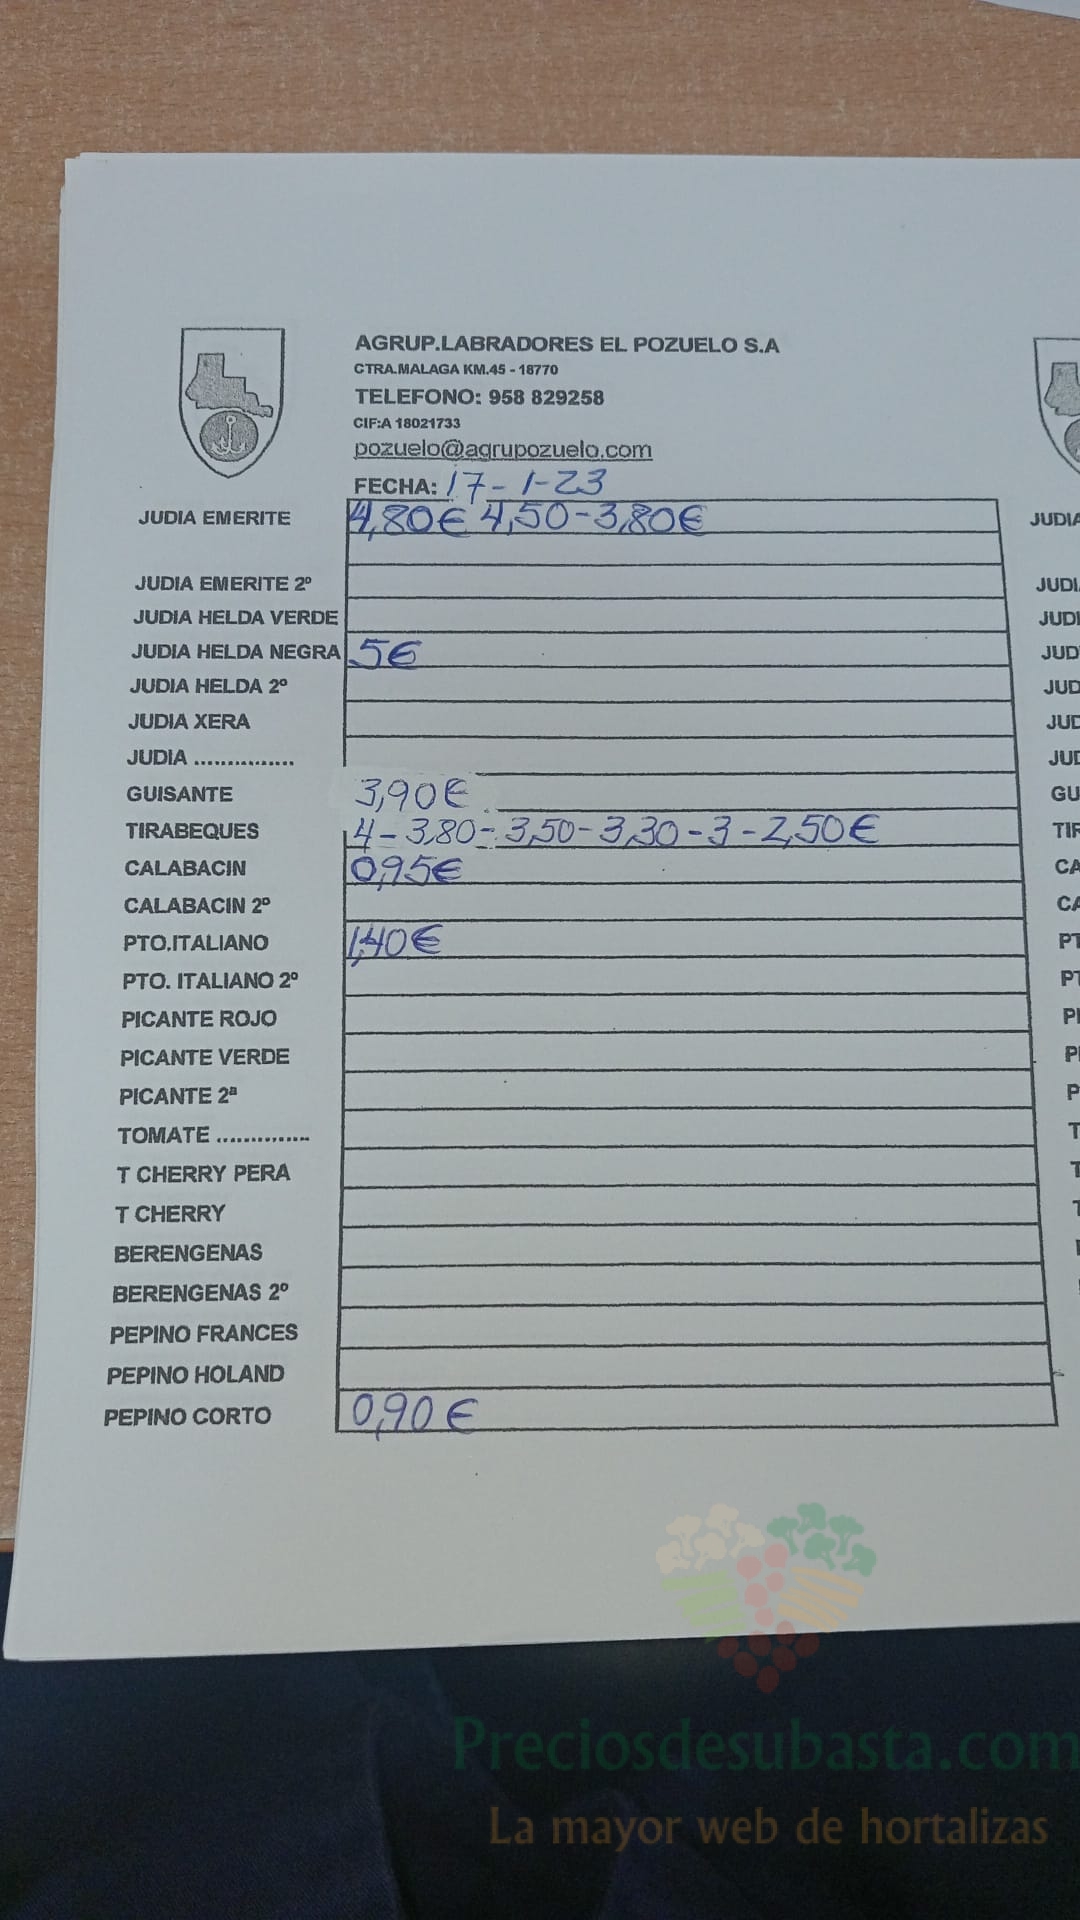 AGRUP.LABRADORES EL POZUELO S.A
CTRA.MALAGA KM.45 - 18770
TELEFONO: 958 829258
CIF:A 18021733
pozuelo@agrupozuelo.com
FECHA: 17-1-23
JUDIA EMERITE 4,80€ 4,50-3,80€ JUDIA
JUDIA EMERITE 2º JUDI
JUDIA HELDA VERDE JUDI
JUDIA HELDA NEGRA 5€ JUD
JUDIA HELDA 2º JUD
JUDIA XERA JUD
JUDIA ............... JUD
GUISANTE 3,90€ GU
TIRABEQUES 4-3,80-3,50-3,30-3-2,50€ TIR
CALABACIN 0,95€ CA
CALABACIN 2º CA
PTO.ITALIANO 1,40€ PT
PTO. ITALIANO 2º PT
PICANTE ROJO PI
PICANTE VERDE PI
PICANTE 2ª P
TOMATE .............. T
T CHERRY PERA T
T CHERRY T
BERENGENAS
BERENGENAS 2º
PEPINO FRANCES
PEPINO HOLAND
PEPINO CORTO 0,90€
Preciosdesubasta.com
La mayor web de hortalizas